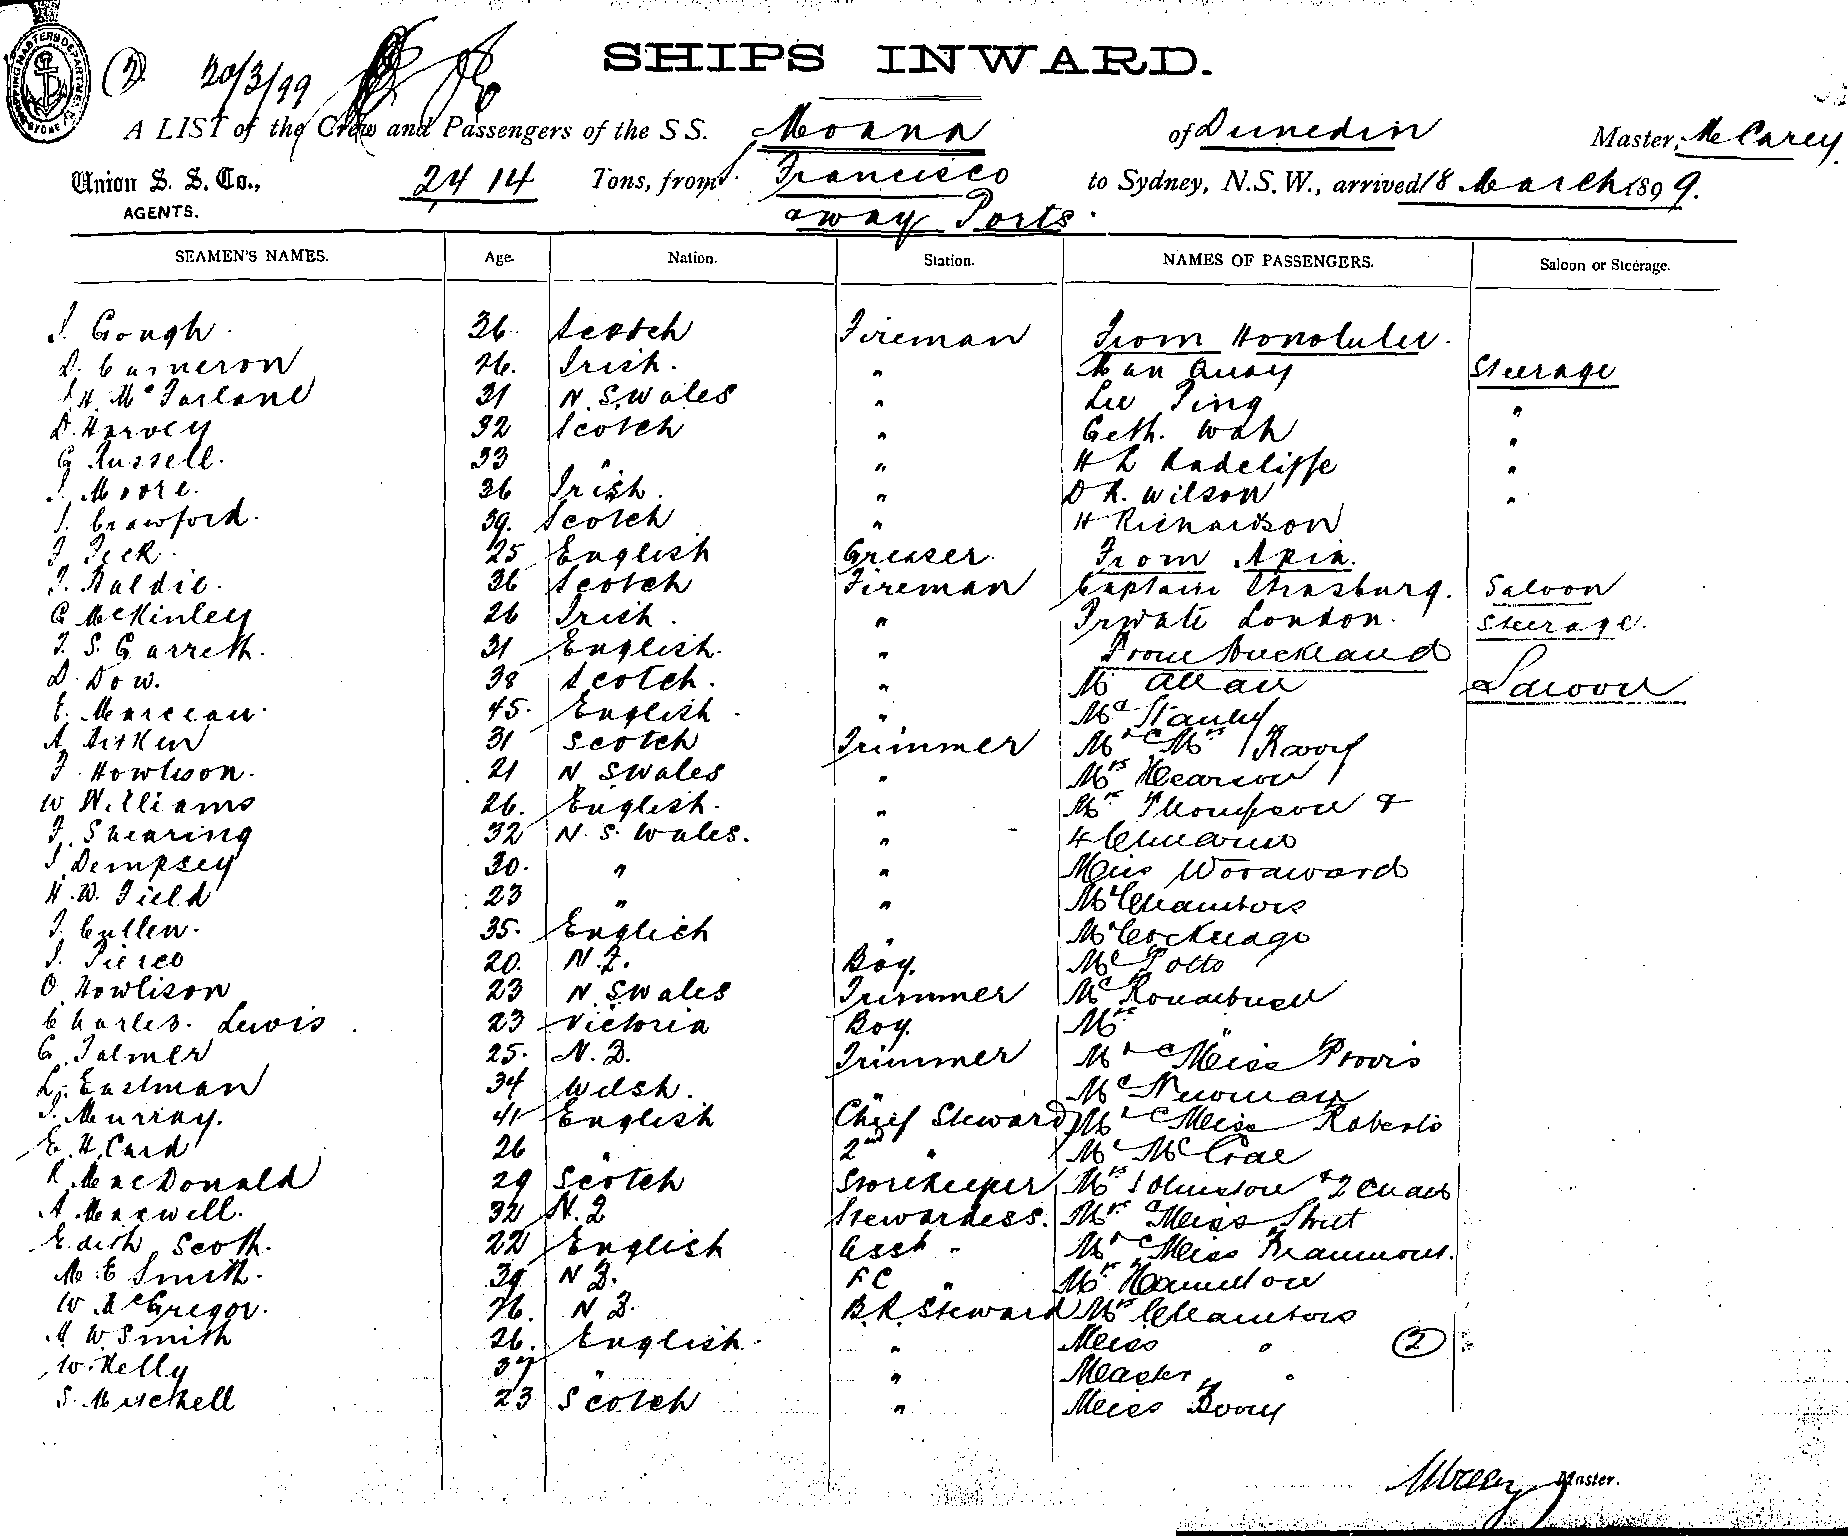 (2) 20/3/99
SHIPS INWARD.
A LIST of the Crew and Passengers of the S S. Moana of Dunedin Master, McCarey
Union S. S. Co., 2414 Tons, from S. Francisco to Sydney, N.S.W., arrived 18 March 1899.
AGENTS. away Ports.
SEAMEN'S NAMES. Age. Nation. Station. NAMES OF PASSENGERS. Saloon or Steerage.
J. Gough 36 Scotch Fireman From Honolulu.
D. Cameron 26. Irish. " Man Quay Steerage
J H. McFarland 31 N. S. Wales " Lee Ping "
D. Harvey 32 Scotch " Geth. Wah "
G Russell. 33 " " H L Radcliffe "
J. Moore. 36 Irish. " D R. Wilson "
J. Crawford. 39. Scotch " H Richardson
J. Teck. 25 English Greaser. From Apia.
J. Baldie. 36 Scotch Fireman Captain Strasburg. Saloon
C McKinley 26 Irish. " Private London. Steerage.
J. S. Garreth. 31 English. " From Auckland
D. Dow. 38 Scotch. " Mr Allan Saloon
E. Marceau. 45. English. " Mr Stanley
A Aitken 31 Scotch Trimmer Mr & Mrs
J. Howlison. 21 N S Wales " Mrs Hearson
W Williams 26. English. " Mrs Thompson &
J. Shearing 32 N. S. Wales. " 4 Children
J Dempsey 30. " " Miss Woodward
H. W. Field 23 " " Mr Chambers
J. Cullen. 35. English " Mr
J. Pierce 20. N. Z. Boy. Mr Potts
O. Howlison 23 N. S. Wales Trimmer Mr Roundbush
Charles. Lewis 23 Victoria Boy. Mrs "
G. Palmer 25. N. Z. Trimmer Mr & Miss Provis
L. Eastman 34 Welsh. " Mr Newman
J. Murray. 41 English Chief Steward Mr & Miss Roberts
E. H. Card 26 " 2nd " Mr McCrae
R MacDonald 29 Scotch Storekeeper Mrs Johnston & 2 Child
A Maxwell. 32 N. Z Stewardess. Mrs & Miss Strut
Edith Scoth. 22 English Asst " Mr & Miss Beaumont.
M. E Smith. 39 N Z. F C " Mrs Hamilton
W McGregor. 26. N Z. B. R. Steward Mrs Chambers
A W Smith 26. English. " Miss " (2)
W. Kelly 37 " " Master "
S. Mitchell 23 Scotch " Miss
Master.